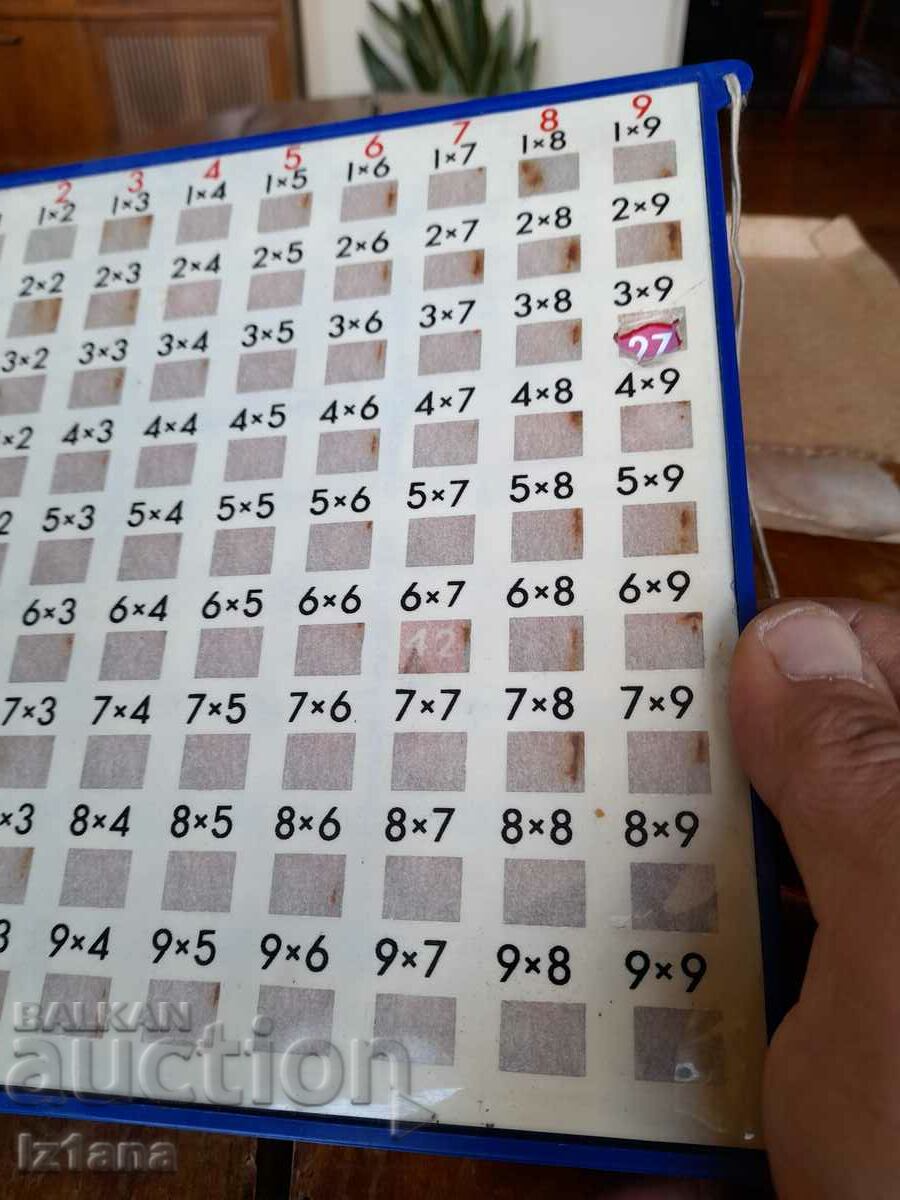 2 3 4 5 6 7 8 9
1×2 1×3 1×4 1×5 1×6 1×7 1×8 1×9
2×2 2×3 2×4 2×5 2×6 2×7 2×8 2×9
3×2 3×3 3×4 3×5 3×6 3×7 3×8 3×9
27
×2 4×3 4×4 4×5 4×6 4×7 4×8 4×9
2 5×3 5×4 5×5 5×6 5×7 5×8 5×9
6×3 6×4 6×5 6×6 6×7 6×8 6×9
42
7×3 7×4 7×5 7×6 7×7 7×8 7×9
×3 8×4 8×5 8×6 8×7 8×8 8×9
3 9×4 9×5 9×6 9×7 9×8 9×9
BALKAN
auction
Iz1ana